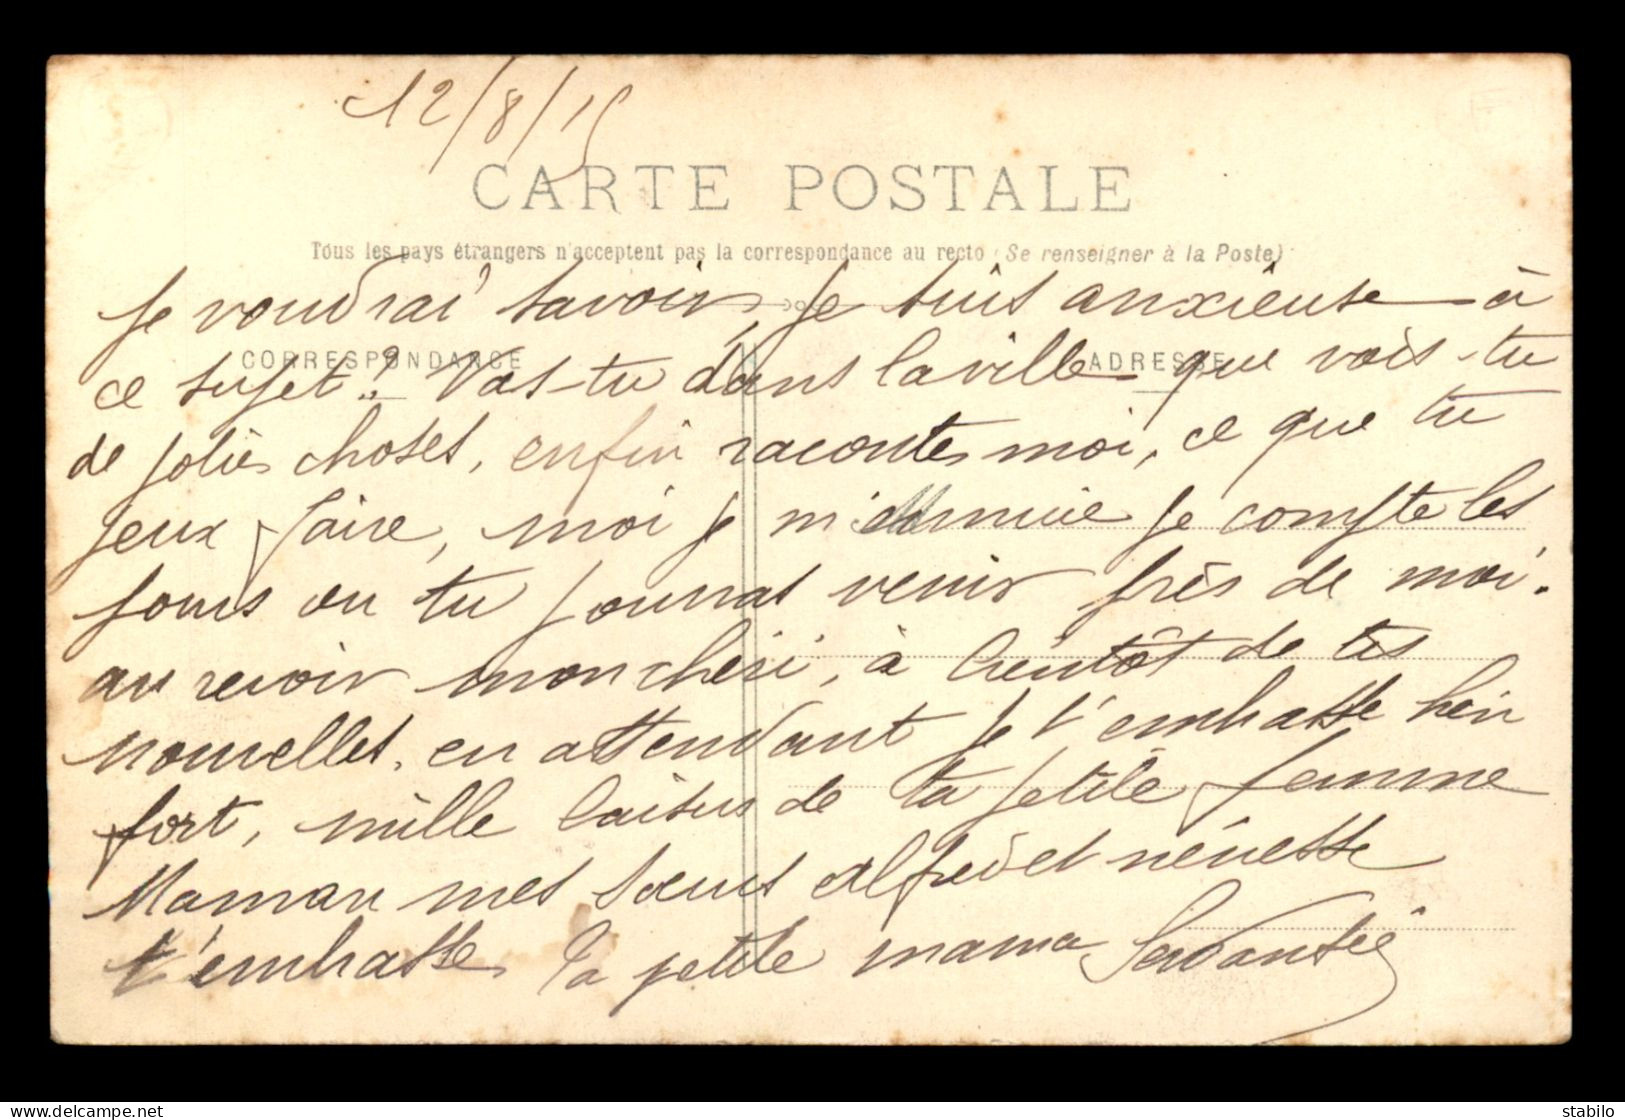 12/8/15
CARTE POSTALE
Tous les pays étrangers n'acceptent pas la correspondance au recto (Se renseigner à la Poste)
je voudrai savoir je suis anxieuse à
CORRESPONDANCE
ADRESSE
ce sujet? Vas-tu dans la ville que vois-tu
de jolies choses, enfin racontes moi, ce que tu
peux faire, moi je m'ennuie je compte les
jours ou tu pourras venir près de moi.
au revoir mon chéri, à bientôt de tes
nouvelles. en attendant je t'embrasse bien
fort, mille baisers de ta petite femme
Maman mes soeurs alfred et nénesse
t'embrasse. Ta petite mama
stabilo